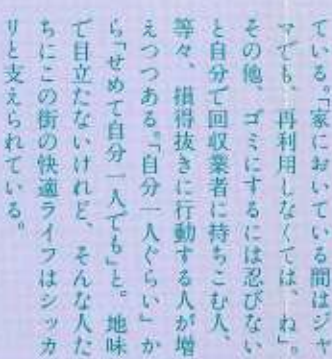 ている。「家においている間はジャ
マでも、再利用しなくては、ね」。
その他、ゴミにするには忍びない
と自分で回収業者に持ちこむ人、
等々、損得抜きに行動する人が増
えつつある。「自分一人ぐらい」か
ら「せめて自分一人でも」と。地味
で目立たないけれど、そんな人た
ちにこの街の快適ライフはシッカ
リと支えられている。